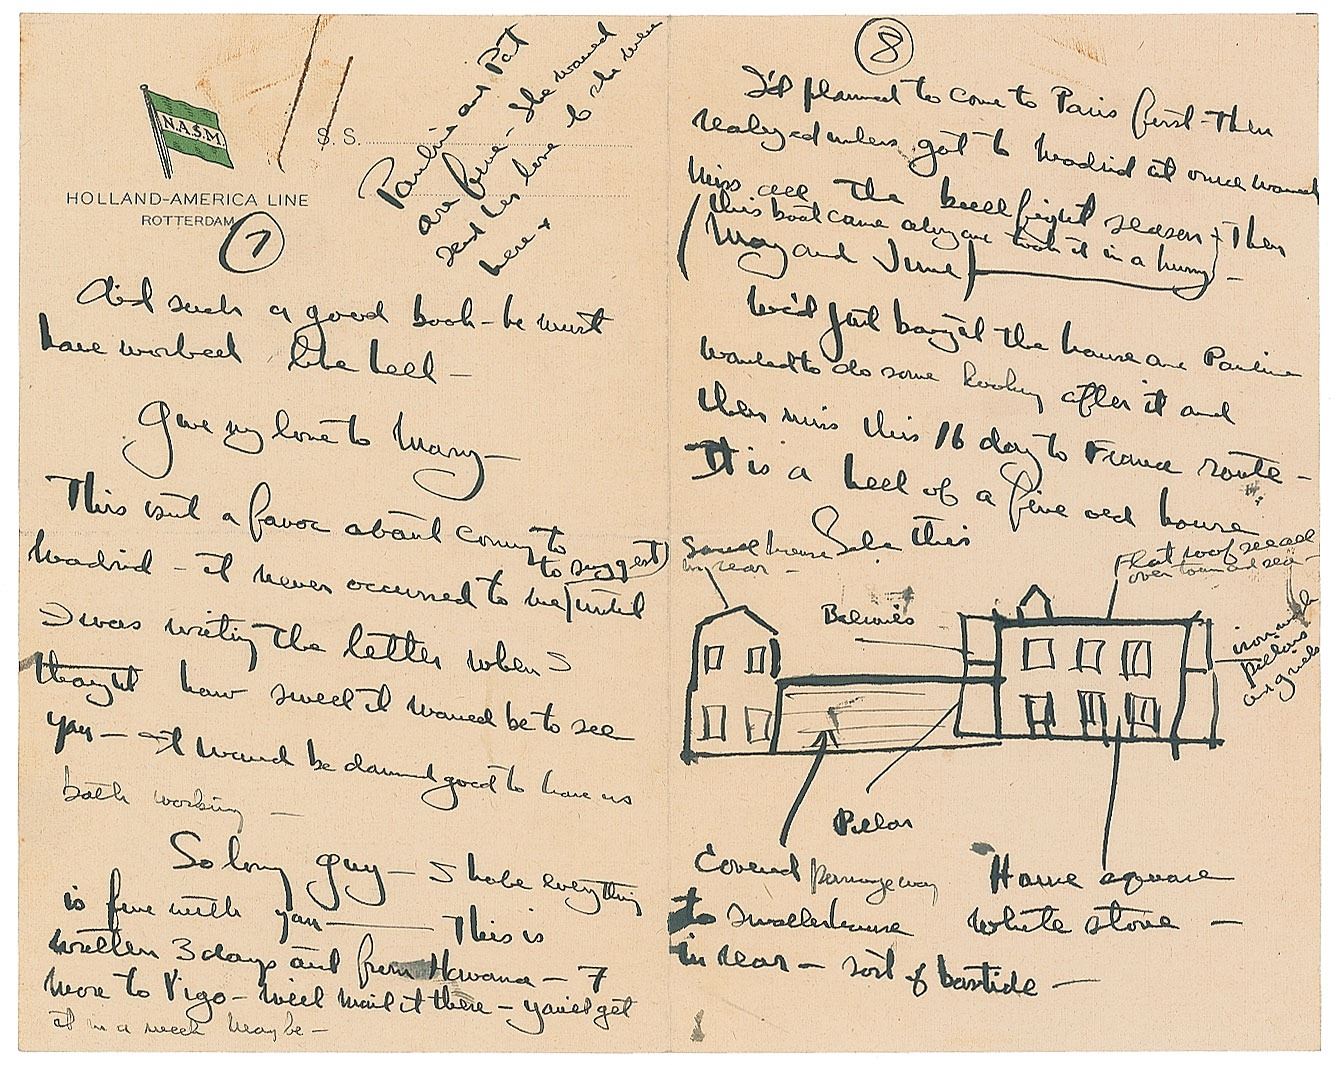 N.A.S.M.
HOLLAND-AMERICA LINE
ROTTERDAM
S.S.
7
Pauline and Pat
are fine - She would
send her love to
here +
did such a good book - he must
have worked like hell -
Give my love to Mary -
This isn't a favor about coming to
Madrid - it never occurred to me (to suggest) until
I was writing the letter when I
thought how sweet it would be to see
you - it would be damned good to have us
both working -
So long guy - I hope everything
is fine with you - This is
written 3 days out from Havana - 7
more to Vigo - We'll mail it there - you'll get
it in a week maybe -
8
I'd planned to come to Paris first - Then
realized unless got to Madrid at once would
miss all the bull fight season - Then
(this boat came along and took it in a hurry)
(May and June) -
We'd just bought the house and Pauline
wanted to do some looking after it and
then miss this 16 day to France route -
It is a hell of a fine old house
like this
Small house
in rear -
Flat roof see all
over town and sea -
Balconies
iron
pillars
and grills
Pillar
Covered passage way
to smaller house
in rear - sort of bastide -
House square
white stone -